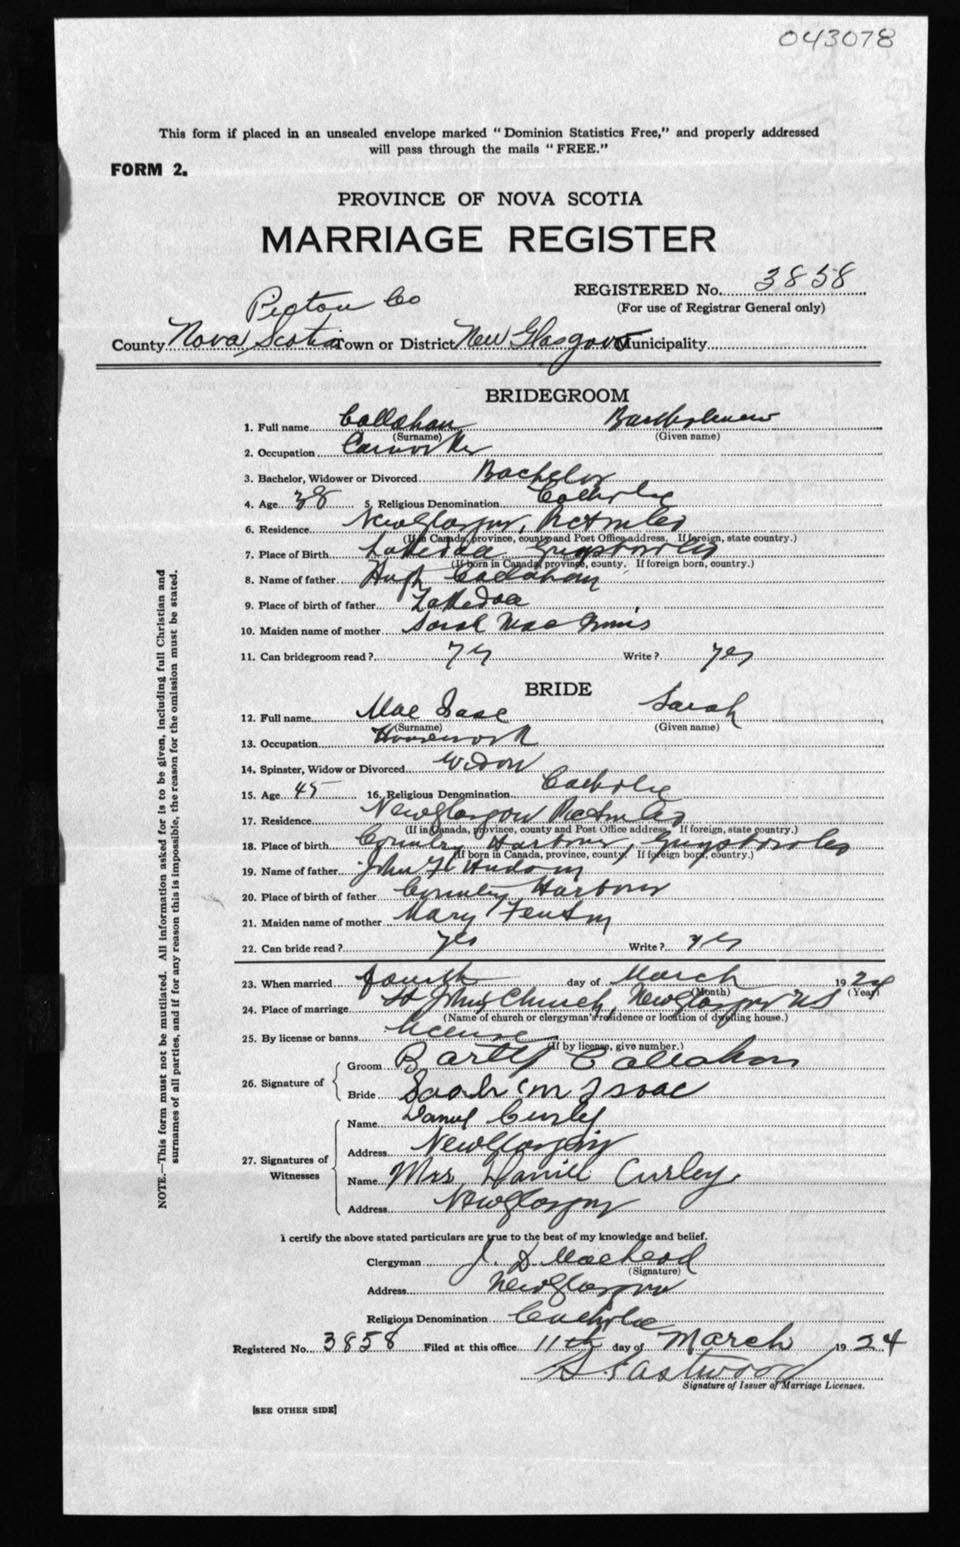 043078
This form if placed in an unsealed envelope marked "Dominion Statistics Free," and properly addressed
will pass through the mails "FREE."
FORM 2.
PROVINCE OF NOVA SCOTIA
MARRIAGE REGISTER
REGISTERED No. 3858
(For use of Registrar General only)
Pictou Co
County Nova Scotia Town or District New Glasgow Municipality
BRIDEGROOM
1. Full name Callahan Bartholomew
(Surname) (Given name)
2. Occupation
3. Bachelor, Widower or Divorced Bachelor
4. Age 38 5. Religious Denomination Catholic
6. Residence New Glasgow, Pictou Co
(If in Canada, province, county and Post Office address. If foreign, state country.)
7. Place of Birth Guysboro Co
(If born in Canada, province, county. If foreign born, country.)
8. Name of father Hugh Callahan
9. Place of birth of father
10. Maiden name of mother Sarah Mac
11. Can bridegroom read? yes Write? yes
BRIDE
12. Full name Mac Isaac Sarah
(Surname) (Given name)
13. Occupation Housework
14. Spinster, Widow or Divorced Widow
15. Age 45 16. Religious Denomination Catholic
17. Residence New Glasgow Pictou Co
(If in Canada, province, county and Post Office address. If foreign, state country.)
18. Place of birth Country Harbour, Guysboro Co
(If born in Canada, province, county. If foreign born, country.)
19. Name of father John H Hudson
20. Place of birth of father Country Harbour
21. Maiden name of mother Mary Fenton
22. Can bride read? yes Write? yes
23. When married fourth day of March 1924
(Month) (Year)
24. Place of marriage St Johns Church, New Glasgow NS
(Name of church or clergyman's residence or location of dwelling house.)
25. By license or banns license
(If by license, give number.)
26. Signature of Groom Bartly Callahan
Bride Sarah Mc Isaac
27. Signatures of Witnesses Name Daniel Curley
Address New Glasgow
Name Mrs Daniel Curley
Address New Glasgow
I certify the above stated particulars are true to the best of my knowledge and belief.
Clergyman J. D. MacLeod
(Signature)
Address New Glasgow
Religious Denomination Catholic
Registered No. 3858 Filed at this office 11th day of March 1924
Eastwood
Signature of Issuer of Marriage Licenses.
[SEE OTHER SIDE]
NOTE.—This form must not be mutilated. All information asked for is to be given, including full Christian and
surnames of all parties, and if for any reason this is impossible, the reason for the omission must be stated.